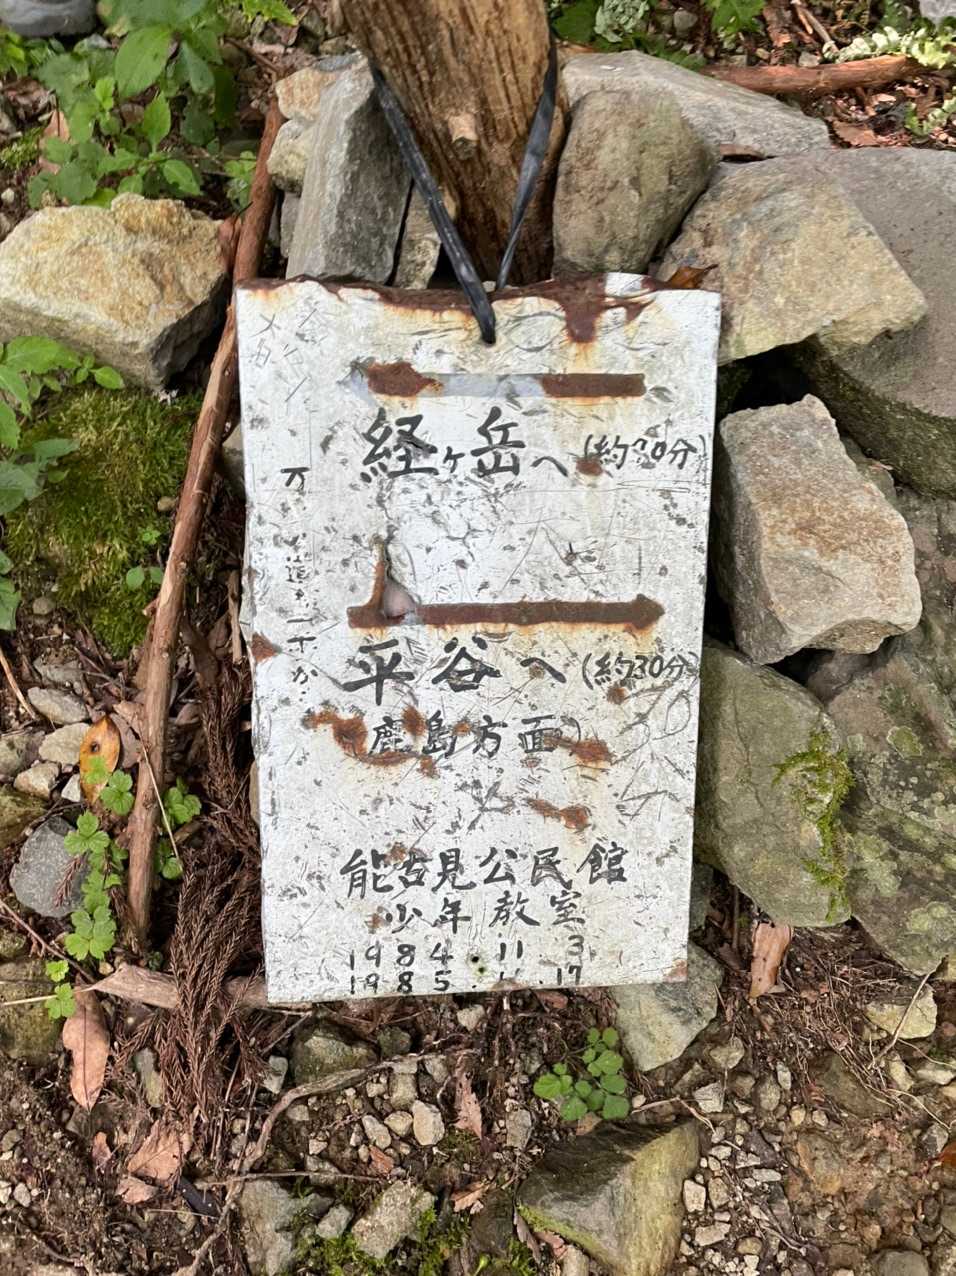 経ヶ岳へ(約30分)
平谷へ(約30分)
鹿島方面)
能古見公民館
少年教室
1984.11.3
1985.11.17